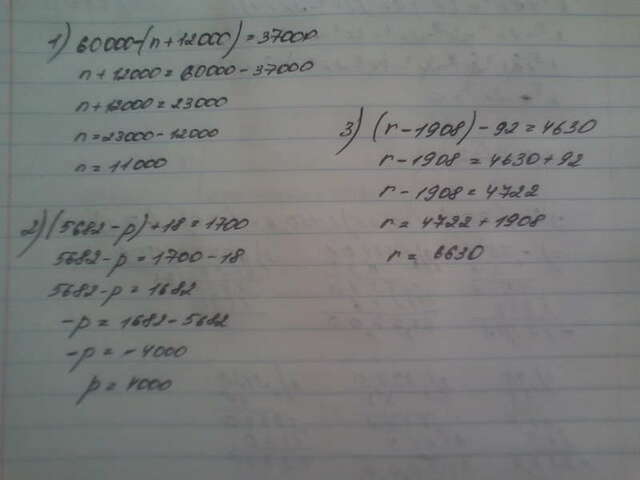 1) 60000-(n+12000)=37000
n+12000=60000-37000
n+12000=23000
n=23000-12000
n=11000
2) (5682-p)+18=1700
5682-p=1700-18
5682-p=1682
-p=1682-5682
-p=-4000
p=4000
3) (r-1908)-92=4630
r-1908=4630+92
r-1908=4722
r=4722+1908
r=6630